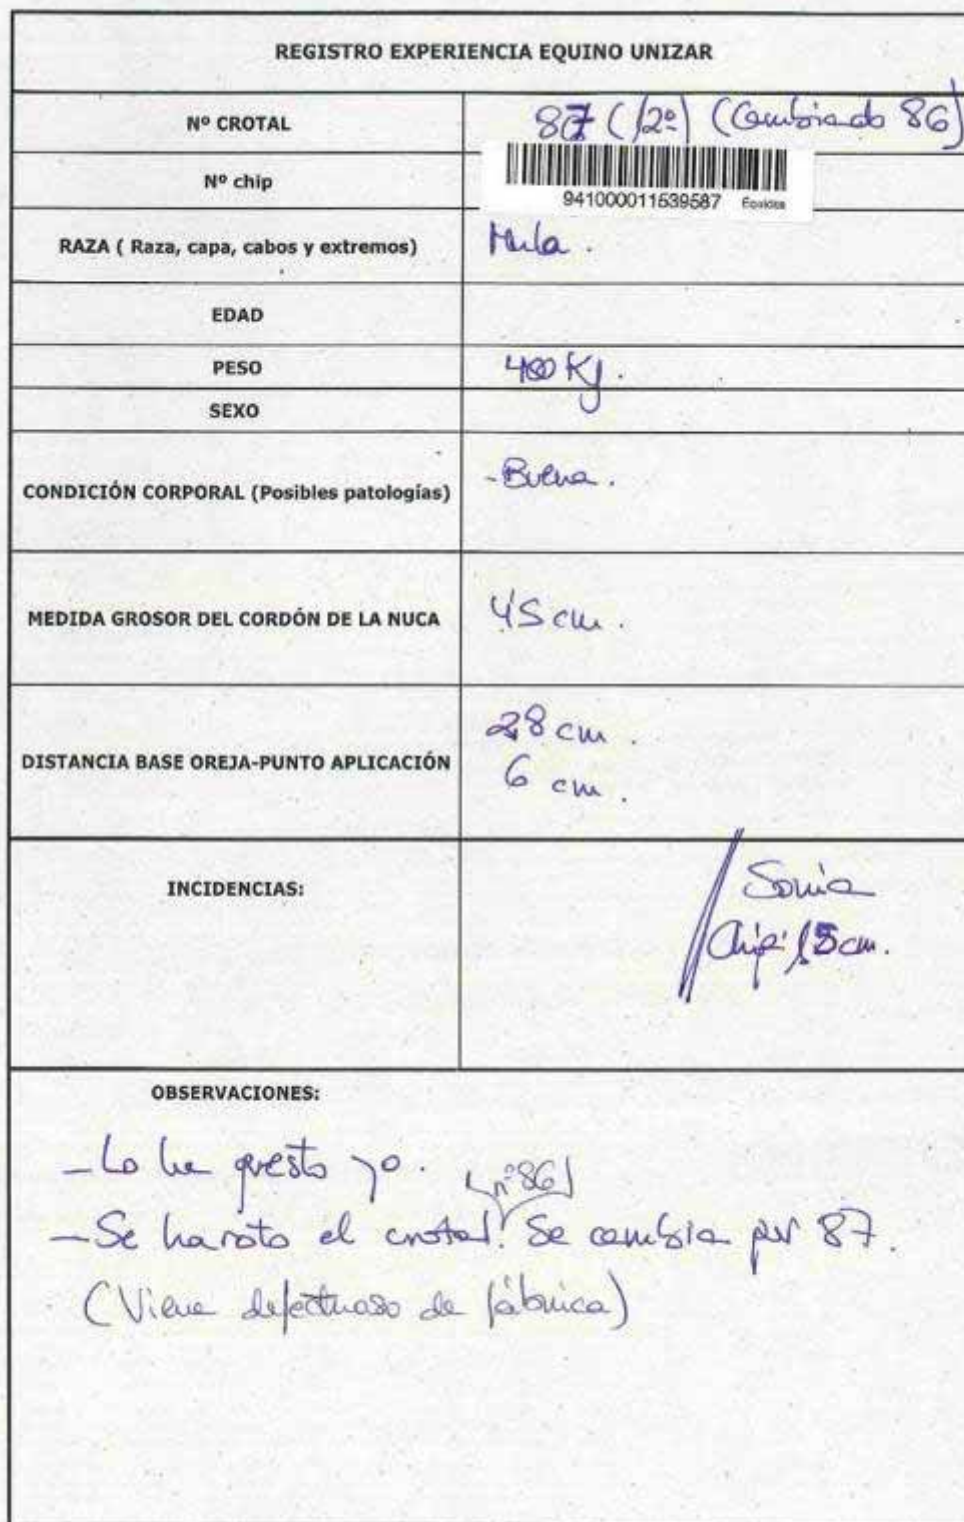 REGISTRO EXPERIENCIA EQUINO UNIZAR
Nº CROTAL 87 (/2º) (Cambiado 86)
Nº chip 941000011539587 Equidos
RAZA ( Raza, capa, cabos y extremos) Mula.
EDAD
PESO 400 Kg.
SEXO
CONDICIÓN CORPORAL (Posibles patologías) -Buena.
MEDIDA GROSOR DEL CORDÓN DE LA NUCA 4'5 cm.
DISTANCIA BASE OREJA-PUNTO APLICACIÓN 28 cm.
6 cm.
INCIDENCIAS: Sonia
Chip: 15 cm.
OBSERVACIONES:
- Lo he puesto yo.
(nº 86)
- Se ha roto el crotal. Se cambia por 87.
(Viene defectuoso de fábrica)